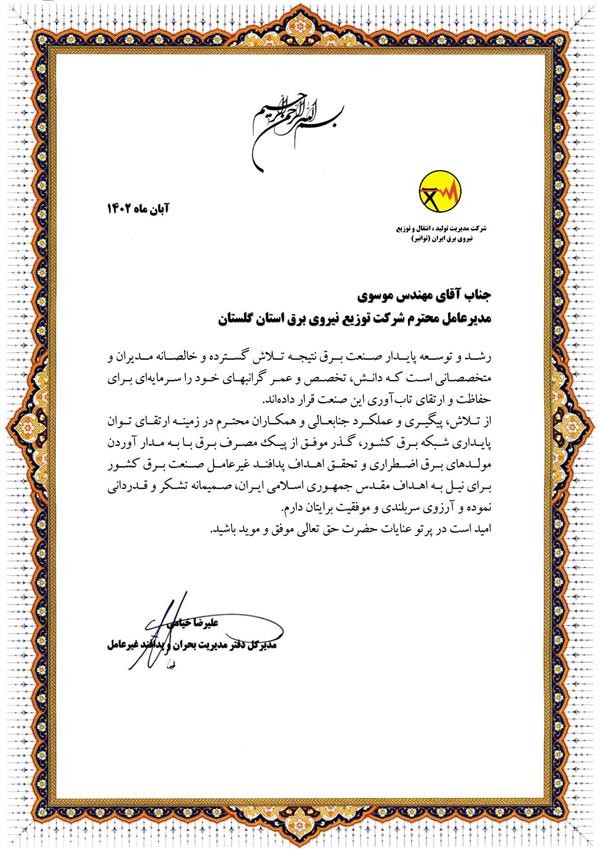 بسم الله الرحمن الرحیم
آبان ماه ۱۴۰۲
شرکت مدیریت تولید، انتقال و توزیع
نیروی برق ایران (توانیر)
جناب آقای مهندس موسوی
مدیرعامل محترم شرکت توزیع نیروی برق استان گلستان
رشد و توسعه پایدار صنعت برق نتیجه تلاش گسترده و خالصانه مدیران و
متخصصانی است که دانش، تخصص و عمر گرانبهای خود را سرمایه‌ای برای
حفاظت و ارتقای تاب‌آوری این صنعت قرار داده‌اند.
از تلاش، پیگیری و عملکرد جنابعالی و همکاران محترم در زمینه ارتقای توان
پایداری شبکه برق کشور، گذر موفق از پیک مصرف برق با به مدار آوردن
مولدهای برق اضطراری و تحقق اهداف پدافند غیرعامل صنعت برق کشور
برای نیل به اهداف مقدس جمهوری اسلامی ایران، صمیمانه تشکر و قدردانی
نموده و آرزوی سربلندی و موفقیت برایتان دارم.
امید است در پرتو عنایات حضرت حق تعالی موفق و موید باشید.
علیرضا خیامی
مدیرکل دفتر مدیریت بحران و پدافند غیرعامل